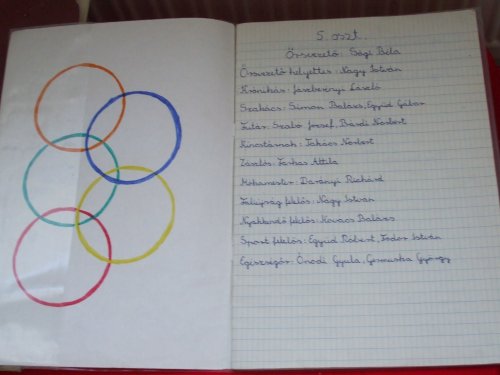 5. oszt.
Őrsvezető: Sági Béla
Őrsvezető helyettes: Nagy István
Krónikás: Jászberényi László
Szakács: Simon Balázs, Együd Gábor
Futár: Szabó József, Bazdi Norbert
Kincstárnok: Takács Norbert
Zászlós: Farkas Attila
Mohamester: Darányi Richárd
Faliújság felelős: Nagy István
Nyakkendő felelős: Kovács Balázs
Sport felelős: Együd Róbert, Fodor István
Egészségőr: Ónodi Gyula, György